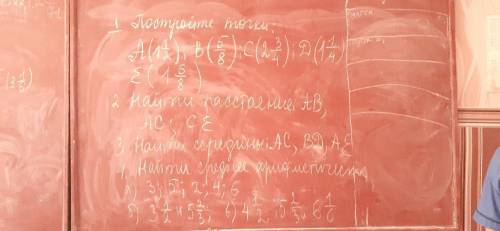 1 Постройте точки:
A(1 1/2); B(5/8); C(2 3/4); D(1 1/4)
E(1 5/8)
2 Найти расстояние, AB,
AC; CE
3 Найти середины: AC, BD, AE
Найти среднее арифметическое
а) 3; 5; 2; 4; 6
б) 3 1/2 и 5 2/3; в) 4 1/2; 5 1/3; 6 1/6